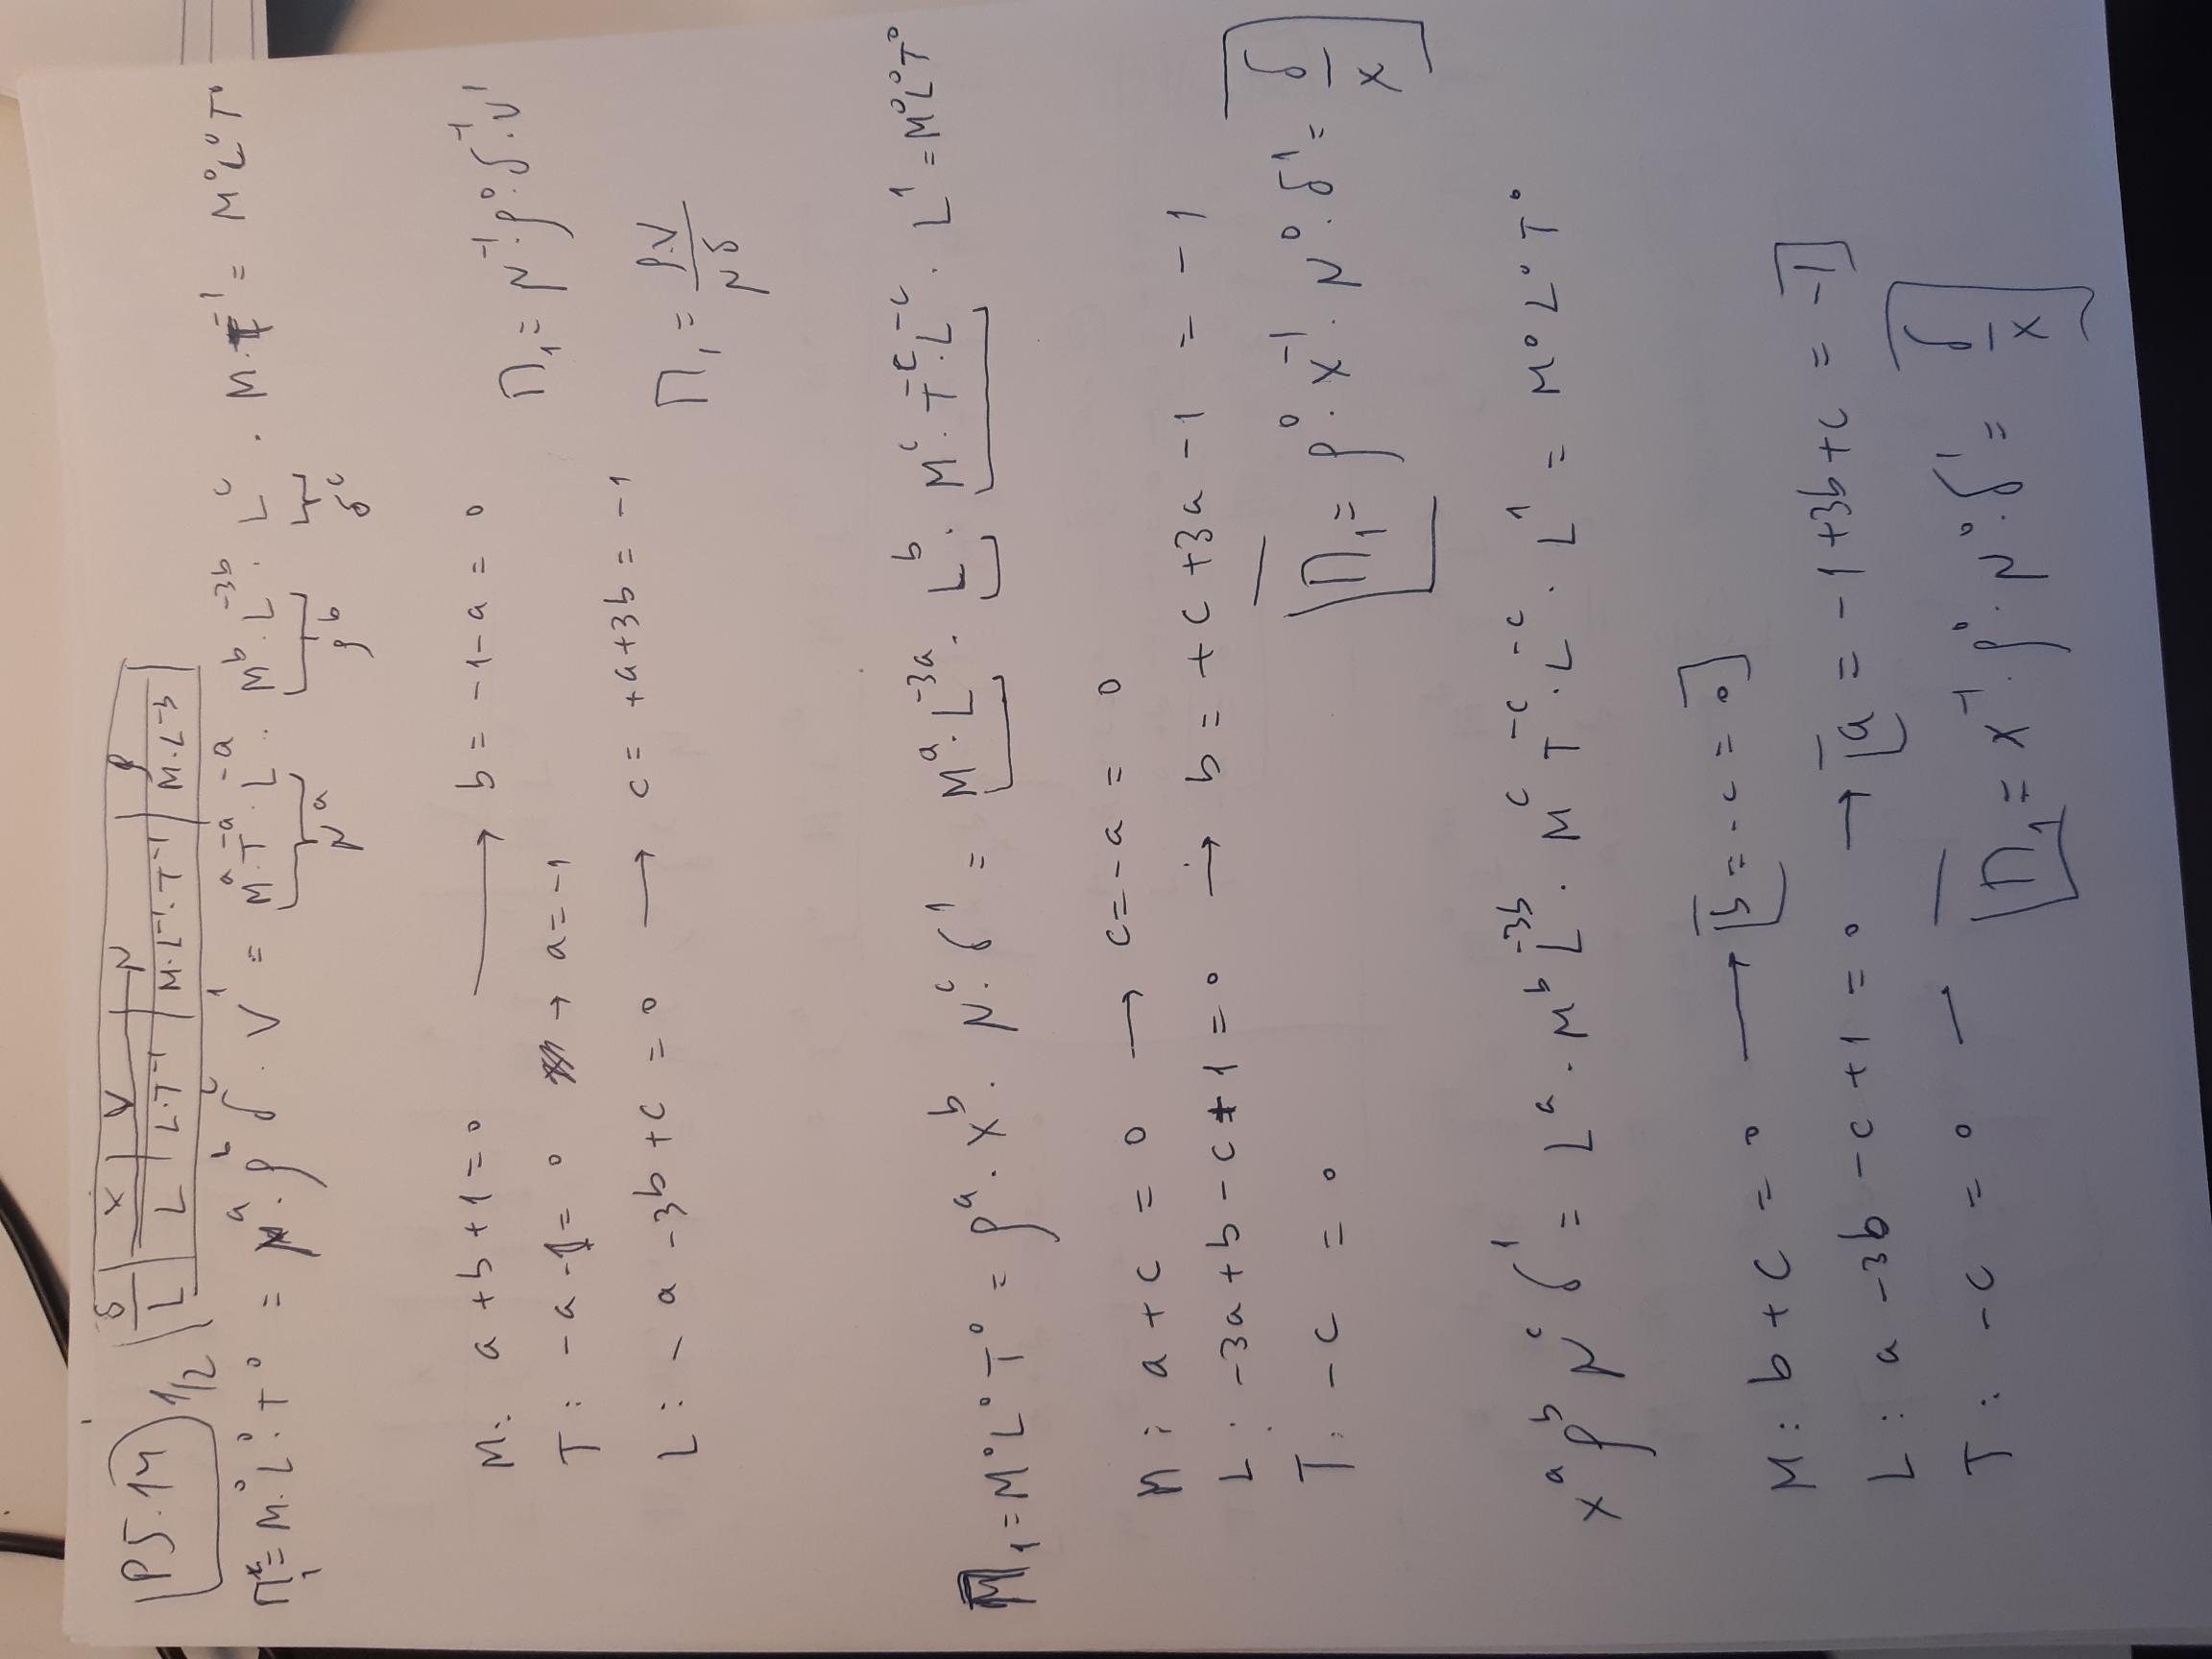 P5.14 1/2
δ | x | V | μ | ρ
L | L | L·T⁻¹ | M·L⁻¹·T⁻¹ | M·L⁻³
Π₁ = M⁰·L⁰·T⁰ = μᵃ·ρᵇ δᶜ·V¹ = Mᵃ·T⁻ᵃ·L⁻ᵃ · Mᵇ·L⁻³ᵇ · Lᶜ · M·T⁻¹ = M⁰L⁰T⁰
μᵃ ρᵇ δᶜ
M: a + b + 1 = 0 → b = -1 - a = 0
Π₁ = μ⁻¹·ρ⁰·δ⁻¹·V¹
T: -a - 1 = 0 → a = -1
L: - a - 3b + c = 0 → c = +a + 3b = -1
Π₁ = ρ·V / μδ
Π₁ = M⁰L⁰T⁰ = ρᵃ·xᵇ·μᶜ·δ¹ = Mᵃ·L⁻³ᵃ · Lᵇ · Mᶜ·T⁻ᶜ·L⁻ᶜ · L¹ = M⁰L⁰T⁰
M: a + c = 0 → c = -a = 0
L: -3a + b - c + 1 = 0 → b = +c + 3a - 1 = -1
T: -c = 0
Π₁ = ρ⁰·x⁻¹·μ⁰·δ¹ = δ/x
xᵃ ρᵇ μᶜ δ¹ = Lᵃ · Mᵇ L⁻³ᵇ · Mᶜ T⁻ᶜ·L⁻ᶜ · L¹ = M⁰L⁰T⁰
M: b + c = 0 → b = -c = 0
L: a - 3b - c + 1 = 0 → a = -1 + 3b + c = -1
T: -c = 0 –
Π₁ = x⁻¹·ρ⁰·μ⁰·δ¹ = δ/x